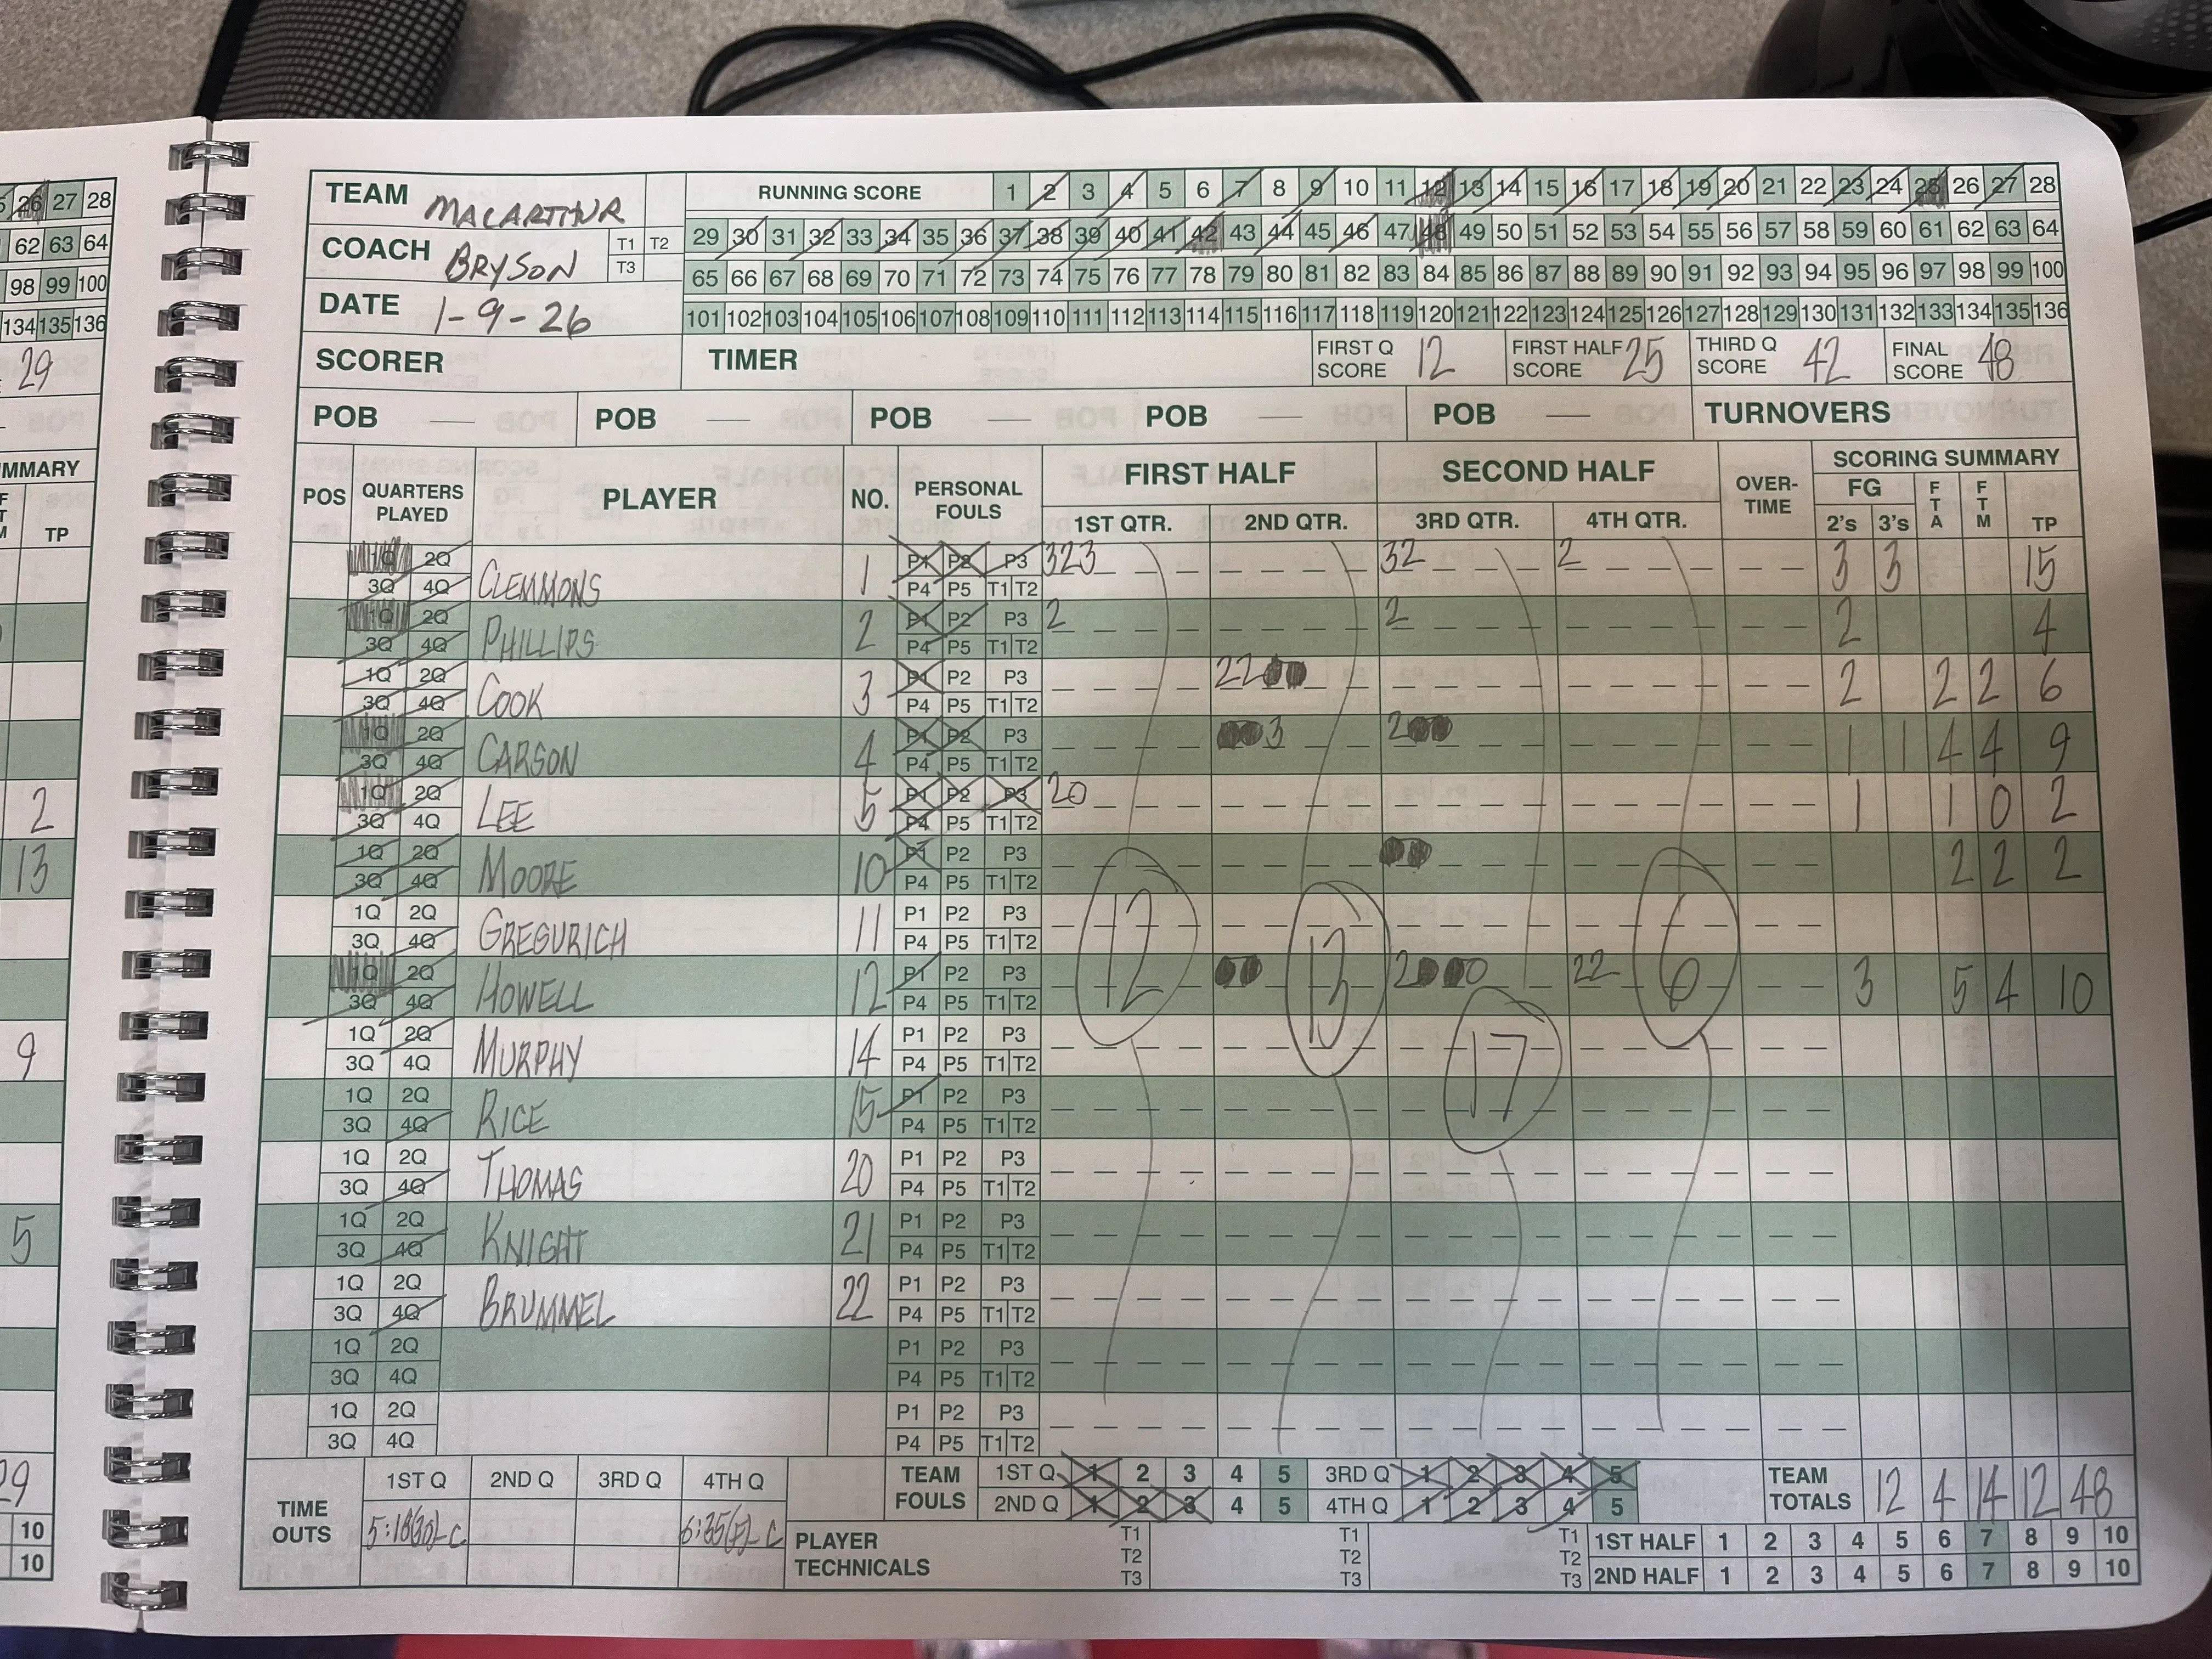 26 27 28
62 63 64
98 99 100
134 135 136
29
MMARY
TP
2
13
9
5
29
10
10
TEAM MACARTHUR
COACH BRYSON T1 T2 T3
DATE 1-9-26
RUNNING SCORE 1 2 3 4 5 6 7 8 9 10 11 12 13 14 15 16 17 18 19 20 21 22 23 24 25 26 27 28
29 30 31 32 33 34 35 36 37 38 39 40 41 42 43 44 45 46 47 48 49 50 51 52 53 54 55 56 57 58 59 60 61 62 63 64
65 66 67 68 69 70 71 72 73 74 75 76 77 78 79 80 81 82 83 84 85 86 87 88 89 90 91 92 93 94 95 96 97 98 99 100
101 102 103 104 105 106 107 108 109 110 111 112 113 114 115 116 117 118 119 120 121 122 123 124 125 126 127 128 129 130 131 132 133 134 135 136
SCORER TIMER FIRST Q SCORE 12 FIRST HALF SCORE 25 THIRD Q SCORE 42 FINAL SCORE 48
POB — POB — POB — POB — POB — TURNOVERS
POS QUARTERS PLAYED PLAYER NO. PERSONAL FOULS FIRST HALF SECOND HALF OVER-TIME SCORING SUMMARY
1ST QTR. 2ND QTR. 3RD QTR. 4TH QTR. FG 2's 3's FTA FTM TP
1Q 2Q 3Q 4Q CLEMMONS 1 P1 P2 P3 P4 P5 T1 T2 323 32 2 3 3 15
1Q 2Q 3Q 4Q PHILLIPS 2 P1 P2 P3 P4 P5 T1 T2 2 2 2 4
1Q 2Q 3Q 4Q COOK 3 P1 P2 P3 P4 P5 T1 T2 2200 2 2 2 6
1Q 2Q 3Q 4Q CARSON 4 P1 P2 P3 P4 P5 T1 T2 003 200 1 1 4 4 9
1Q 2Q 3Q 4Q LEE 5 P1 P2 P3 P4 P5 T1 T2 20 1 1 0 2
1Q 2Q 3Q 4Q MOORE 10 P1 P2 P3 P4 P5 T1 T2 00 2 2 2
1Q 2Q 3Q 4Q GREGURICH 11 P1 P2 P3 P4 P5 T1 T2
1Q 2Q 3Q 4Q HOWELL 12 P1 P2 P3 P4 P5 T1 T2 12 00 13 2000 22 6 3 5 4 10
1Q 2Q 3Q 4Q MURPHY 14 P1 P2 P3 P4 P5 T1 T2 17
1Q 2Q 3Q 4Q RICE 15 P1 P2 P3 P4 P5 T1 T2
1Q 2Q 3Q 4Q THOMAS 20 P1 P2 P3 P4 P5 T1 T2
1Q 2Q 3Q 4Q KNIGHT 21 P1 P2 P3 P4 P5 T1 T2
1Q 2Q 3Q 4Q BRUMMEL 22 P1 P2 P3 P4 P5 T1 T2
1Q 2Q 3Q 4Q P1 P2 P3 P4 P5 T1 T2
1Q 2Q 3Q 4Q P1 P2 P3 P4 P5 T1 T2
TIME OUTS 1ST Q 2ND Q 3RD Q 4TH Q
5:18(30)-C 6:35(F)-C
TEAM FOULS 1ST Q 1 2 3 4 5 3RD Q 1 2 3 4 5
2ND Q 1 2 3 4 5 4TH Q 1 2 3 4 5
TEAM TOTALS 12 4 14 12 48
PLAYER TECHNICALS T1 T2 T3 T1 T2 T3 T1 T2 T3
1ST HALF 1 2 3 4 5 6 7 8 9 10
2ND HALF 1 2 3 4 5 6 7 8 9 10